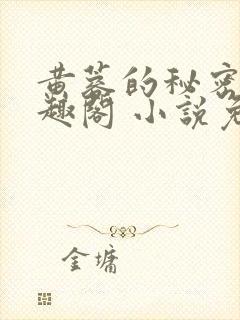 黄蓉的秘密
趣阁 小说免
金墉